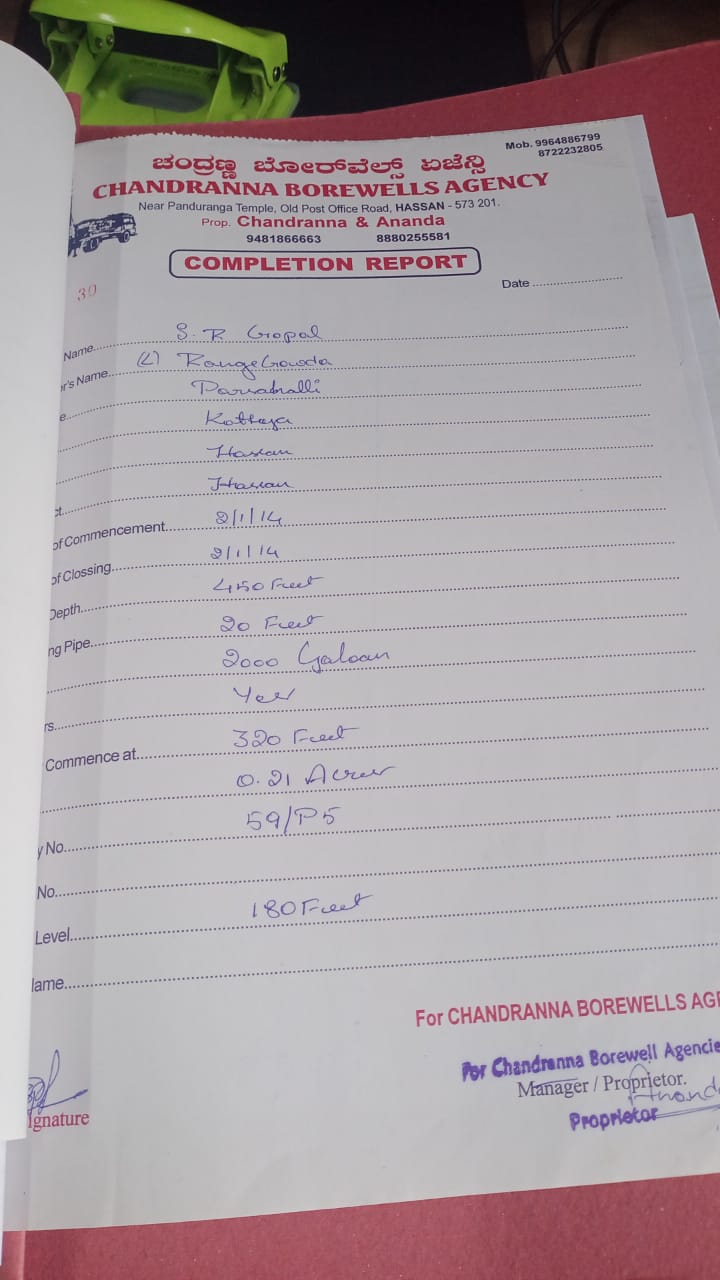 Mob. 9964886799
8722232805
ಚಂದ್ರಣ್ಣ ಬೋರ್‌ವೆಲ್ಸ್ ಏಜೆನ್ಸಿ
CHANDRANNA BOREWELLS AGENCY
Near Panduranga Temple, Old Post Office Road, HASSAN - 573 201.
Prop. Chandranna & Ananda
9481866663 8880255581
COMPLETION REPORT
39
Date
Name S. R Gopal
r's Name (L) RangeGowda
e
Kotteya
Hassan
ct Hassan
of Commencement 2/1/14
of Clossing 2/1/14
Depth 450 Feet
ng Pipe 20 Feet
2000 Galoan
rs Yes
Commence at 320 Feet
0.21 Acres
y No. 59/P5
No.
Level 180 Feet
lame
For CHANDRANNA BOREWELLS AGE
For Chandranna Borewell Agencie
Manager / Proprietor.
Ananda
Proprietor
ignature